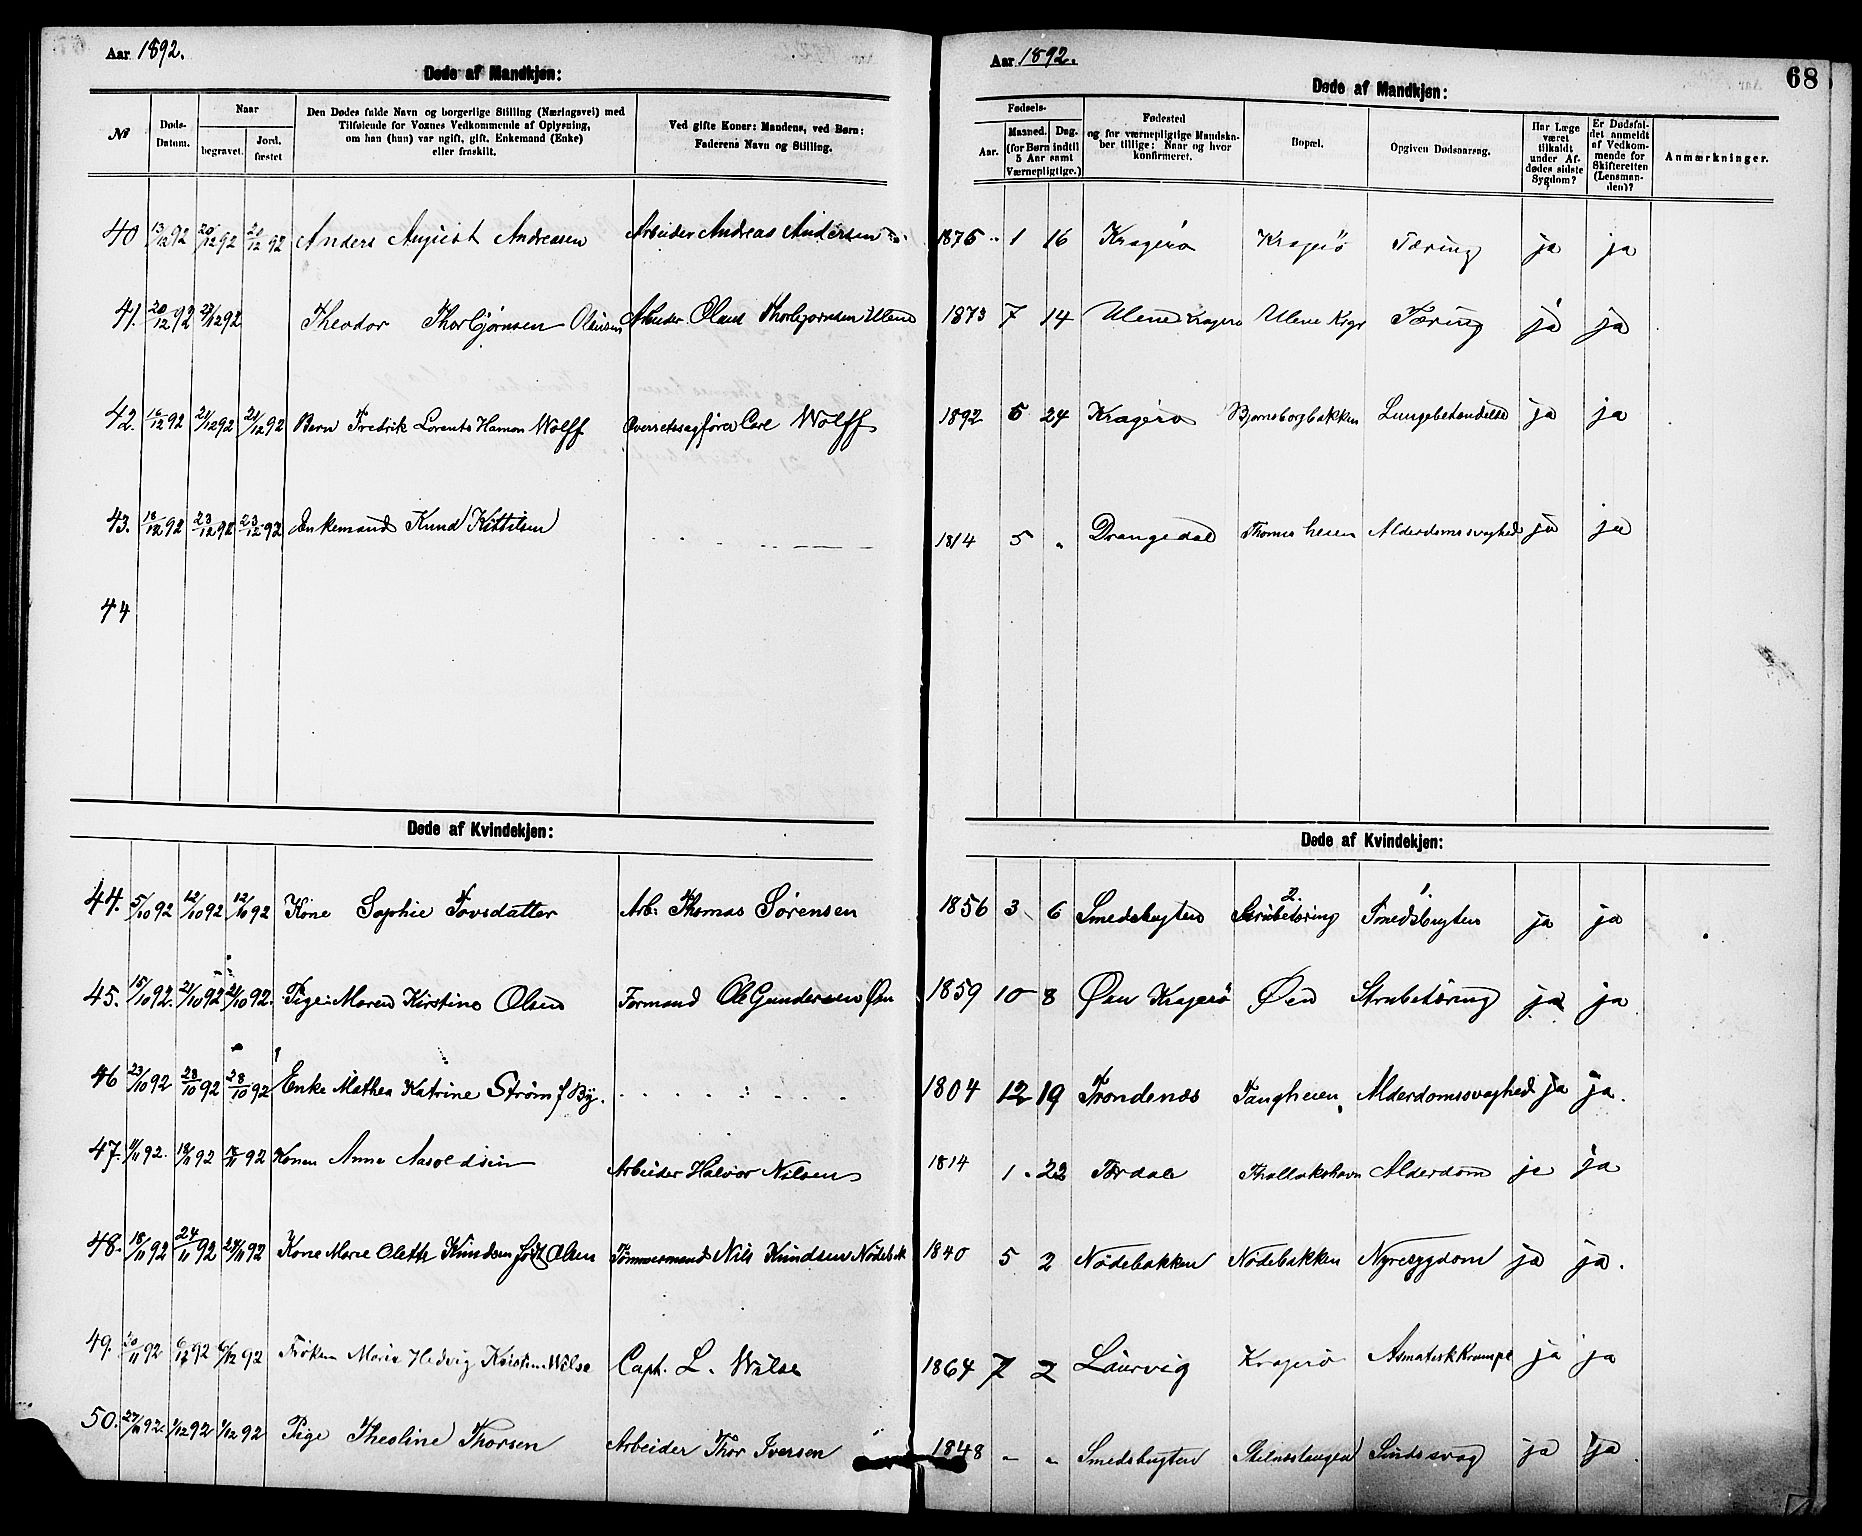 Aar 1892.
Døde af Mandkjøn:
№
Døds-Datum.
Naar
begravet.
Jord.fæstet
Den Dødes fulde Navn og borgerlige Stilling (Næringsvei) med
Tilføiende for Voxnes Vedkommende af Oplysning,
om han (hun) var ugift, gift, Enkemand (Enke)
eller fraskilt.
Ved gifte Koner: Mandens, ved Børn:
Faderens Navn og Stilling.
40 13/12 92 20/12 92 20/12 92 Anders August Andreasen Arbeider Andreas Andersen
41. 20/12 92 27/12 92 Theodor Thorbjørnsen Olausen Arbeider Olaus Thorbjørnsen Ulene
42. 16/12 92 21/12 92 21/12 92 Barn Fredrik Lorents Haman Wolff Overretssagfører Carl Wolff
43. 18/12 92 23/12 92 23/12 92 Enkemand Knud Kittilsen
44
Døde af Kvindekjøn:
44. 5/10 92 12/10 92 12/10 92 Kone Sophie Tovsdatter Arb: Thomas Sørensen
45. 15/10 92. 21/10 92 21/10 92. Pige: Maren Kirstine Olsen Formand Ole Gundersen Øen
46 23/10 92 28/10 92 28/10 92 Enke Mathea Katrine Strøm f By.
47. 11/11 92. 18/11 92 18/11 92 Konen Anne Aasoldsen Arbeider Halvor Nilsen
48. 18/11 92 24/11 92 24/11 92 Kone Marie Olette Knudsen født Olsen Tømmermand Nils Knudsen Nødebak
49. 30/11 92 6/12 92 6/12 92 Frøken Maria Hedvig Kristine Wilse Capt. L. Wilse
50. 27/11 92. 1/12 92 1/12 92 Pige Theoline Thorsen Arbeider Thor Iversen
Aar 1892.
68
Døde af Mandkjøn:
Fødsels-
Aar.
Maaned.
Dag.
(for Børn indtil
5 Aar samt
Værnepligtige.)
Fødested
og for værnepligtige Mandskaber tillige: Naar og hvor
konfirmeret.
Bopæl.
Opgiven Dødsaarsag.
Har Læge
været
tilkaldt
under Afdødes sidste
Sygdom?
Er Dødsfaldet anmeldt
af Vedkommende for
Skifteretten
(Lensmanden)?
Anmærkninger.
1875 1 16 Kragerø Kragerö Tæring ja ja
1873 7 14 Ulene Kragerø Ulene Krgr Tæring ja ja
1892 5 24 Kragerø Bjørnsborgbakken Lungebetændelse ja ja
1814 5 " Drangedal Thomesheien Alderdomssvaghed ja ja
Døde af Kvindekjøn:
1856 3 6 Smedsbugten 2. Strubetæring 1. Smedsbugten ja ja
1859 10 8 Øen Kragerö Øen Strubetæring ja ja
1804 12 19 Trondenæs Tangheien Alderdomssvaghed ja ja.
1814 1. 22 Tørdale Thallakshavn Alderdom ja ja
1840 5 2 Nødebakken Nödebakken Nyresygdom ja ja.
1864 7 2 Laurvig Kragerø Asmatisk Krampe ja ja
1848 " " Smedsbugten Sindssvag ja ja